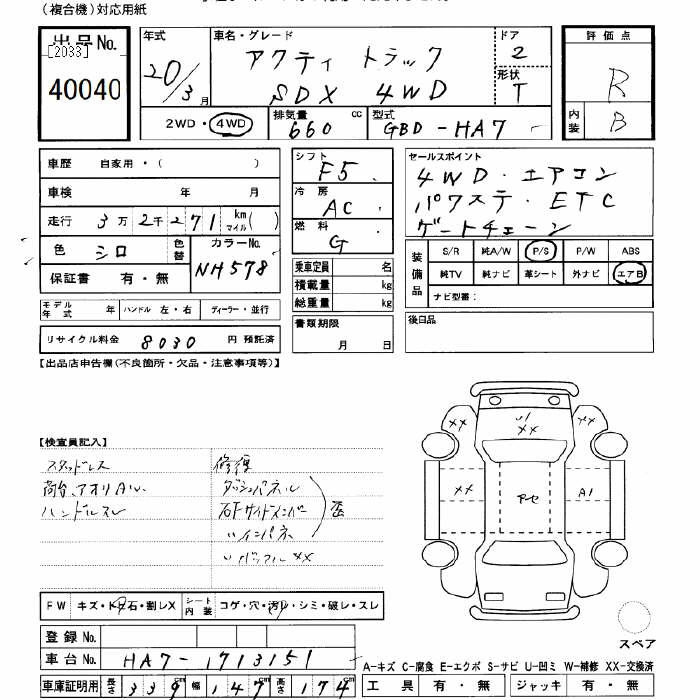 (複合機)対応用紙
出品No.
[2033]
40040
年式
20/3 月
車名・グレード
アクティ トラック
SDX 4WD
ドア
2
形状
T
2WD・4WD
排気量
660 cc
型式
GBD-HA7
評価点
R
内装
B
車歴 自家用・( )
車検 年 月
走行 3万2千271 km マイル( )
色 シロ
色替
カラーNo.
NH578
保証書 有・無
モデル年式 年 ハンドル 左・右 ディーラー・並行
リサイクル料金 8030 円 預託済
シフト
F5
冷房
AC
燃料
G
乗車定員 名
積載量 kg
総重量 kg
書類期限
月 日
セールスポイント
4WD・エアコン
パワステ・ETC
ゲートチェーン
装備品
S/R 純A/W P/S P/W ABS
純TV 純ナビ 革シート 外ナビ エアB
ナビ型番:
後日品
【出品店申告欄(不良箇所・欠品・注意事項等)】
【検査員記入】
スタッドレス
荷台、アオリAU、
ハンドルスレ
修復
ダッシュパネル
右Fサイドメンバー
〃インパネ
〃バッフルXX
歪
XX
XX
XX
XX
アーセ
A1
FW キズ・トビ石・割レX
シート内装 コゲ・穴・汚レ・シミ・破レ・スレ
登録No.
車台No. HA7-1713151
車庫証明用 長さ 339 cm 幅 147 cm 高さ 174 cm
スペア
A-キズ C-腐食 E-エクボ S-サビ U-凹ミ W-補修 XX-交換済
工具 有・無 ジャッキ 有・無